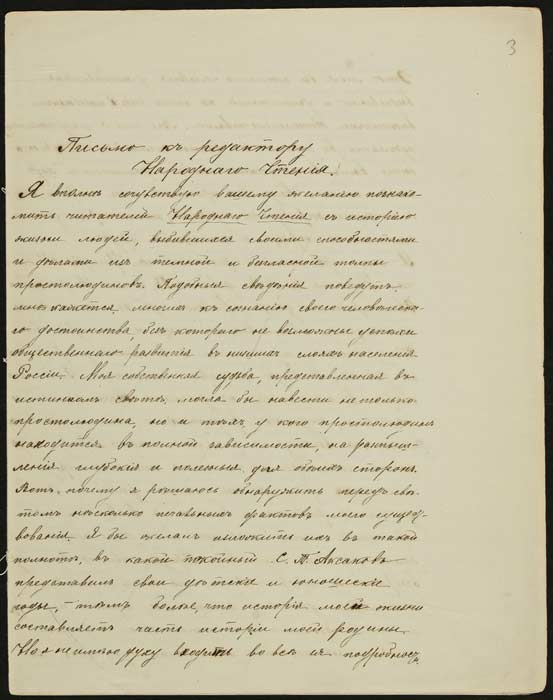 3
Письмо къ редактору
Народнаго Чтенія.
Я вполнѣ сочувствую вашему желанію познако-
мить читателей Народнаго Чтенія съ исторіею
жизни людей, выбившихся своими способностями
и дѣлами изъ темной и безгласной толпы
простолюдиновъ. Подобныя свѣдѣнія поведутъ,
мнѣ кажется, многихъ къ сознанію своего человѣческа-
го достоинства, безъ котораго не возможны успѣхи
общественнаго развитія въ низшихъ слояхъ населенія
Россіи. Моя собственная судьба, представленная въ
истинномъ свѣтѣ, могла бы навести не только
простолюдина, но и тѣхъ, у кого простолюдинъ
находится въ полной зависимости, на размыш-
ленія глубокія и полезныя для обѣихъ сторонъ.
Вотъ, почему я рѣшаюсь обнаружить передъ свѣ-
томъ нѣсколько печальныхъ фактовъ моего сущес-
вованія. Я бы желалъ изложить ихъ въ такой
полнотѣ, въ какой покойный С. Т. Аксаковъ
представилъ свои дѣтскіе и юношескіе
годы, – тѣмъ болѣе, что исторія моей жизни
составляетъ часть исторіи моей родины.
Но я не имѣю духу входить во всѣ ея подробнос